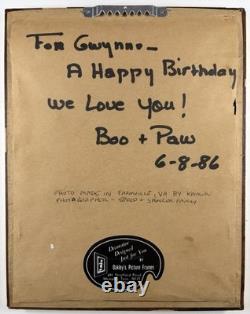 For Gwynne-
A Happy Birthday
We Love You!
Boo + Paw
6-8-86
PHOTO MADE IN FARMVILLE, VA BY
PHOTOGRAPHER -
Designed
Just for You
Oakley's Picture Frames
ebay